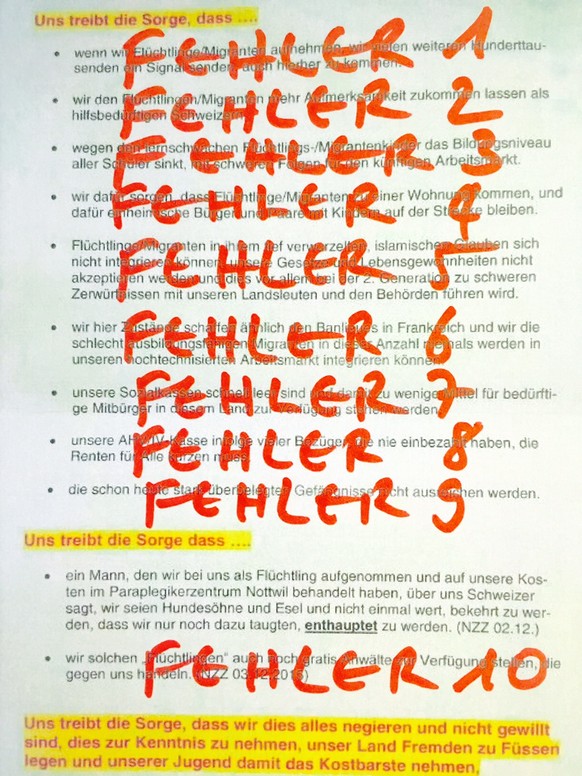 Uns treibt die Sorge, dass ....
wenn wir Flüchtlinge/Migranten aufnehmen, wir einen weiteren Hunderttau-
senden ein Signal senden, auch hierher zu kommen.
FEHLER 1
wir den Flüchtlingen/Migranten mehr Aufmerksamkeit zukommen lassen als
hilfsbedürftigen Schweizern.
FEHLER 2
wegen den lernschwachen Flüchtlings-/Migrantenkinder das Bildungsniveau
aller Schüler sinkt, mit schweren Folgen für den künftigen Arbeitsmarkt.
FEHLER 3
wir dafür sorgen, dass Flüchtlinge/Migranten zu einer Wohnung kommen, und
dafür einheimische Bürger und Paare mit Kindern auf der Strecke bleiben.
FEHLER 4
Flüchtlinge/Migranten in ihrem tief verwurzelten, islamischen Glauben sich
nicht integrieren können, unsere Gesetze und Lebensgewohnheiten nicht
akzeptieren werden und dies vor allem bei der 2. Generation zu schweren
Zerwürfnissen mit unseren Landsleuten und den Behörden führen wird.
FEHLER 5
wir hier Zustände schaffen ähnlich den Banlieues in Frankreich und wir die
schlecht ausbildungsfähigen Migranten in dieser Anzahl niemals werden in
unseren hochtechnisierten Arbeitsmarkt integrieren können.
FEHLER 6
unsere Sozialkassen schnell leer sind und damit zu wenige Mittel für bedürfti-
ge Mitbürger in diesem Land zur Verfügung stehen werden.
FEHLER 7
unsere AHV/IV-Kasse infolge vieler Bezüger, die nie einbezahlt haben, die
Renten für Alle kürzen muss.
FEHLER 8
die schon heute stark überbelegten Gefängnisse nicht ausreichen werden.
FEHLER 9
Uns treibt die Sorge dass ....
ein Mann, den wir bei uns als Flüchtling aufgenommen und auf unsere Kos-
ten im Paraplegikerzentrum Nottwil behandelt haben, über uns Schweizer
sagt, wir seien Hundesöhne und Esel und nicht einmal wert, bekehrt zu wer-
den, dass wir nur noch dazu taugten, enthauptet zu werden. (NZZ 02.12.)
wir solchen „Flüchtlingen“ auch noch gratis Anwälte zur Verfügung stellen, die
gegen uns handeln. (NZZ 03.12.2015)
FEHLER 10
Uns treibt die Sorge, dass wir dies alles negieren und nicht gewillt
sind, dies zur Kenntnis zu nehmen, unser Land Fremden zu Füssen
legen und unserer Jugend damit das Kostbarste nehmen,